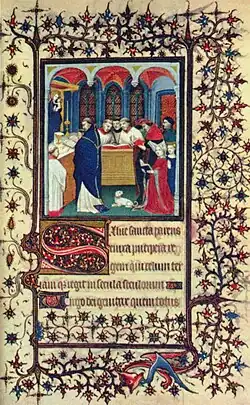 Salve sancta parens
enixa puerpera re
gem qui celum ter
ram q̃ regit in secula seculorum
Virgo dei genitrix quem totus